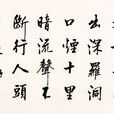 出深羅洞
口煙十里
暗流聲不
斷行人頭